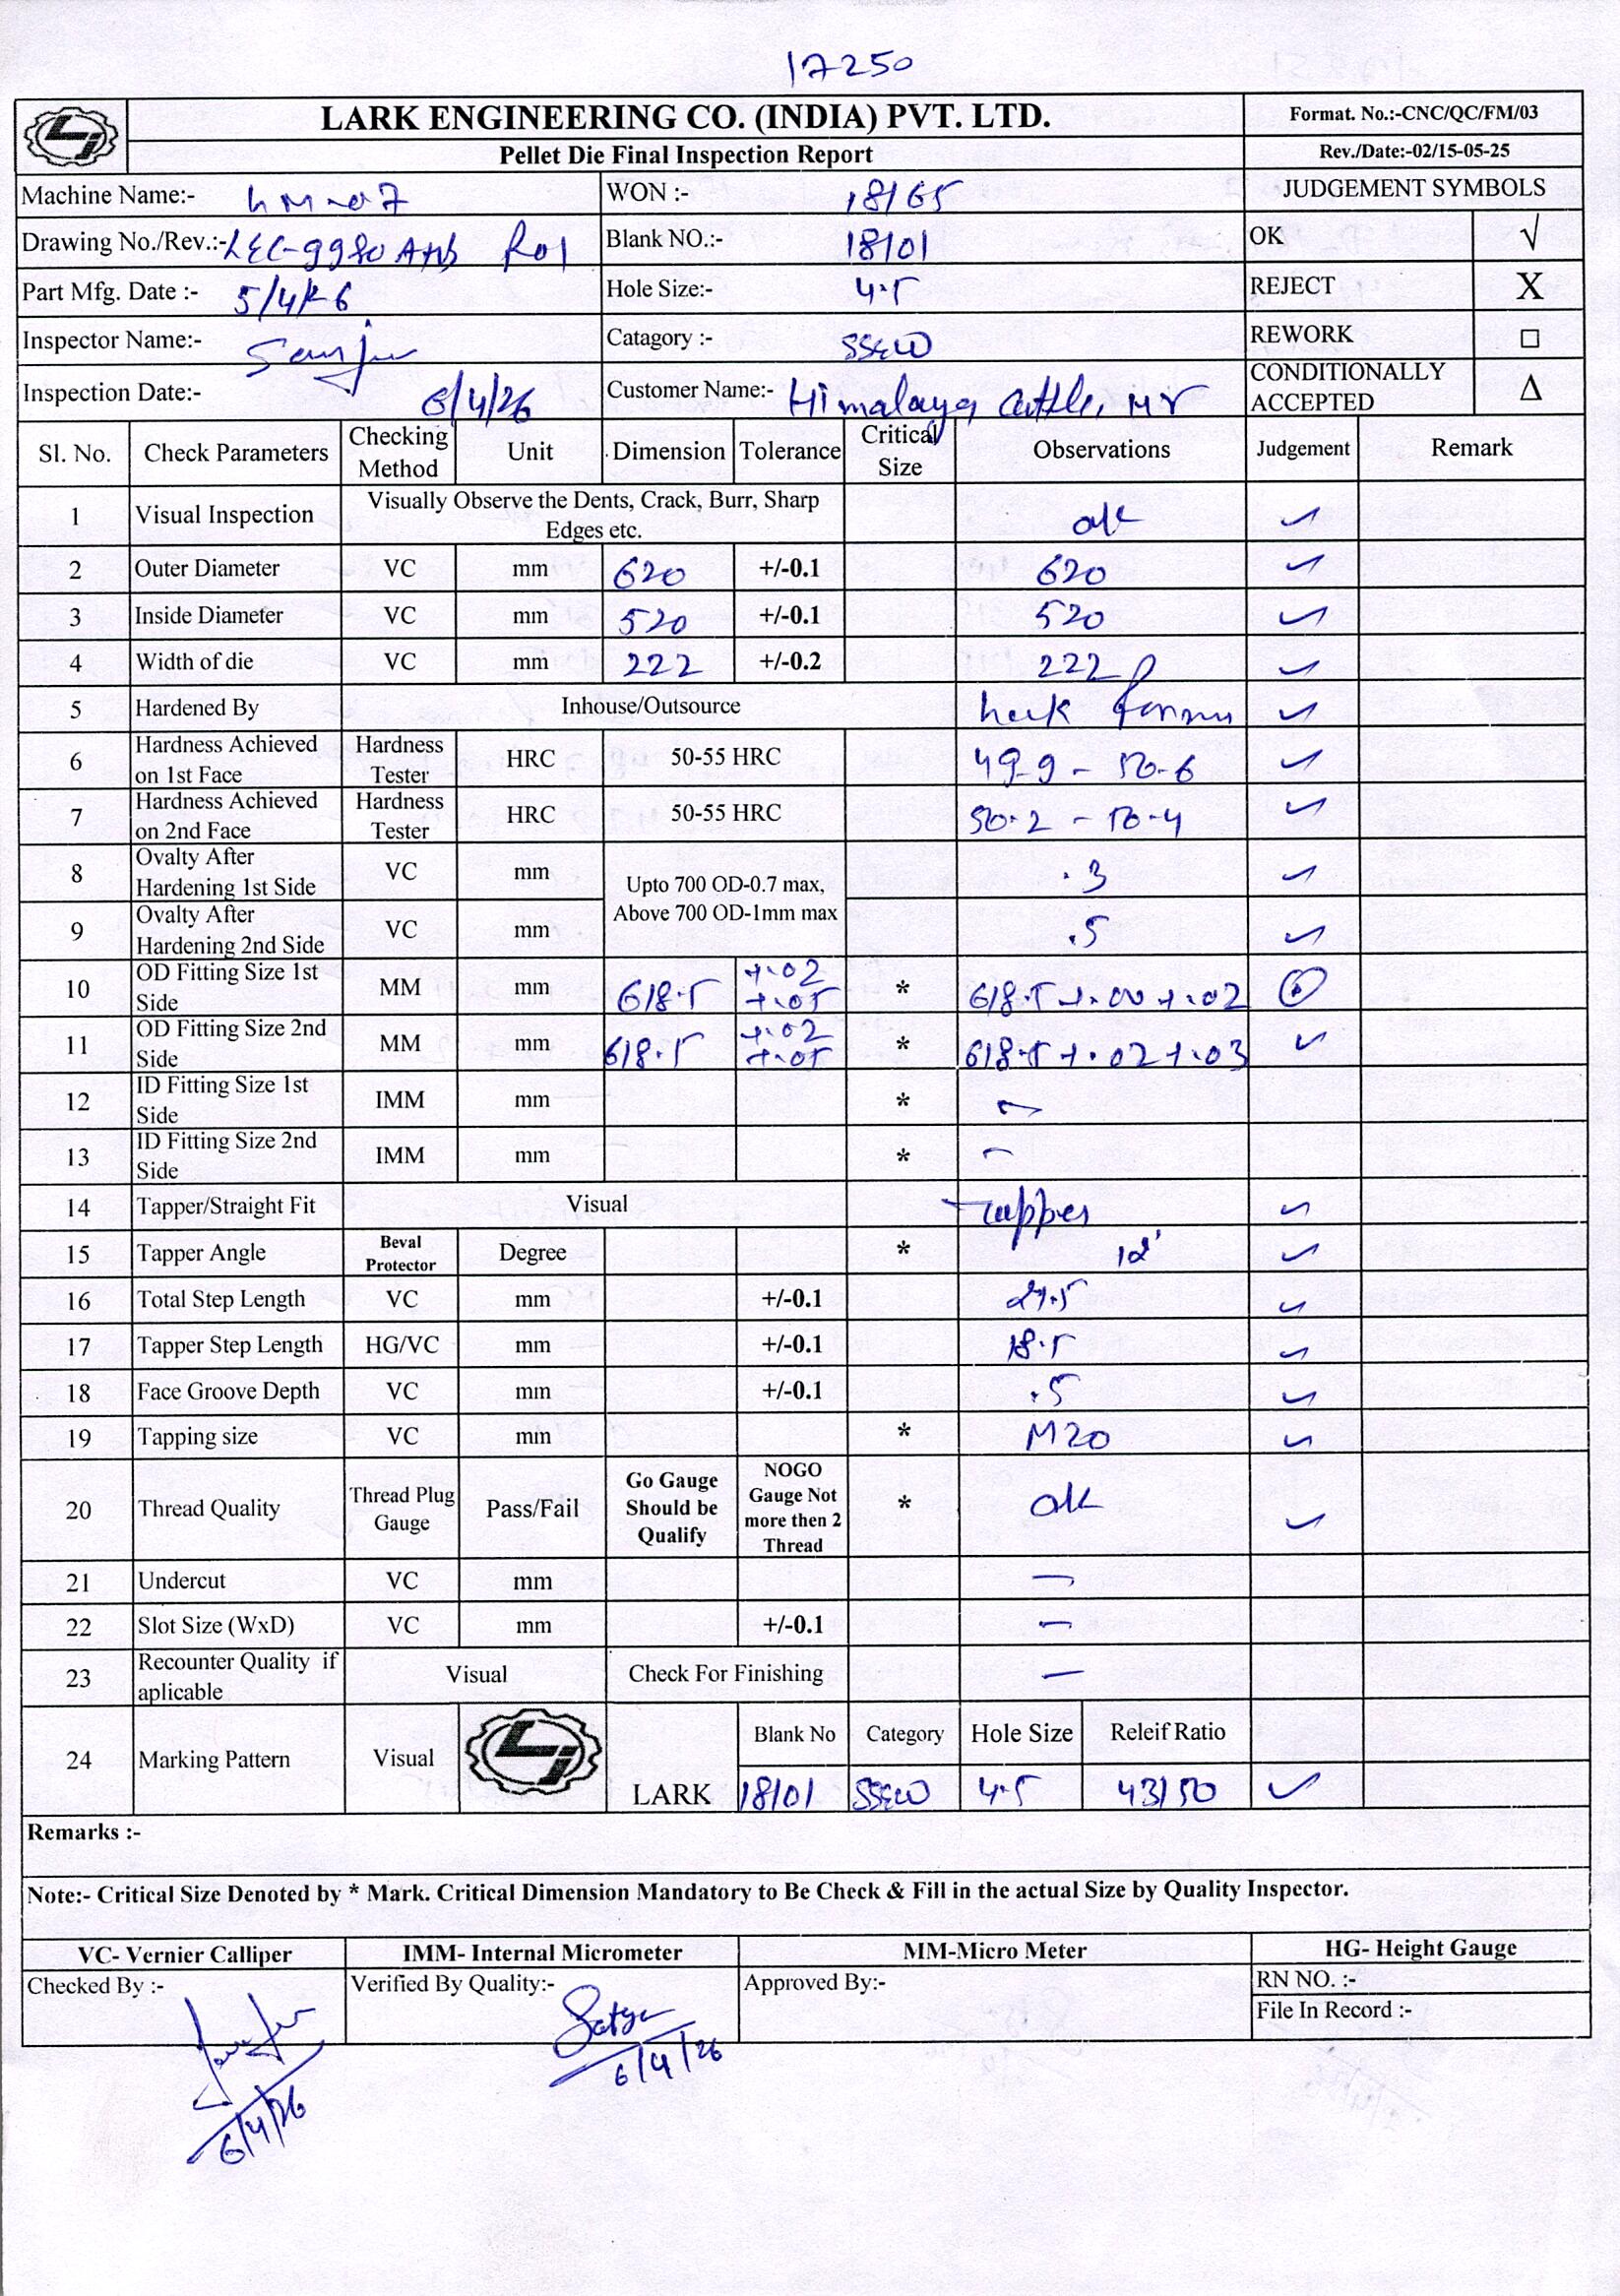 17250
LARK ENGINEERING CO. (INDIA) PVT. LTD.
Format. No.:-CNC/QC/FM/03
Pellet Die Final Inspection Report
Rev./Date:-02/15-05-25
Machine Name:- WON :- 18165 JUDGEMENT SYMBOLS
Drawing No./Rev.:- LEC-9980 R01 Blank NO.:- 18101 OK √
Part Mfg. Date :- 5/4/26 Hole Size:- 4.5 REJECT X
Inspector Name:- Sanju Catagory :- REWORK □
Inspection Date:- 6/4/26 Customer Name:- Himalaya Cattle, CONDITIONALLY ACCEPTED Δ
Sl. No. Check Parameters Checking Method Unit Dimension Tolerance Critical Size Observations Judgement Remark
1 Visual Inspection Visually Observe the Dents, Crack, Burr, Sharp Edges etc. ok ✓
2 Outer Diameter VC mm 620 +/-0.1 620 ✓
3 Inside Diameter VC mm 520 +/-0.1 520 ✓
4 Width of die VC mm 222 +/-0.2 222 ✓
5 Hardened By Inhouse/Outsource ✓
6 Hardness Achieved on 1st Face Hardness Tester HRC 50-55 HRC 49.9 - 50.6 ✓
7 Hardness Achieved on 2nd Face Hardness Tester HRC 50-55 HRC 50.2 - 50.4 ✓
8 Ovalty After Hardening 1st Side VC mm Upto 700 OD-0.7 max, Above 700 OD-1mm max .3 ✓
9 Ovalty After Hardening 2nd Side VC mm .5 ✓
10 OD Fitting Size 1st Side MM mm 618.5 +.02 +.05 * 618.5 +.00 +.02
11 OD Fitting Size 2nd Side MM mm 618.5 +.02 +.05 * 618.5 +.02 +.03 ✓
12 ID Fitting Size 1st Side IMM mm * -
13 ID Fitting Size 2nd Side IMM mm * -
14 Tapper/Straight Fit Visual Tapper ✓
15 Tapper Angle Beval Protector Degree * ✓
16 Total Step Length VC mm +/-0.1 ✓
17 Tapper Step Length HG/VC mm +/-0.1 18.5 ✓
18 Face Groove Depth VC mm +/-0.1 .5 ✓
19 Tapping size VC mm * M20 ✓
20 Thread Quality Thread Plug Gauge Pass/Fail Go Gauge Should be Qualify NOGO Gauge Not more then 2 Thread * ok ✓
21 Undercut VC mm -
22 Slot Size (WxD) VC mm +/-0.1 -
23 Recounter Quality if aplicable Visual Check For Finishing -
24 Marking Pattern Visual LARK Blank No Category Hole Size Releif Ratio
18101 4.5 43/50 ✓
Remarks :-
Note:- Critical Size Denoted by * Mark. Critical Dimension Mandatory to Be Check & Fill in the actual Size by Quality Inspector.
VC- Vernier Calliper IMM- Internal Micrometer MM-Micro Meter HG- Height Gauge
Checked By :- Verified By Quality:- Approved By:- RN NO. :-
File In Record :-
Satya
6/4/26
6/4/26